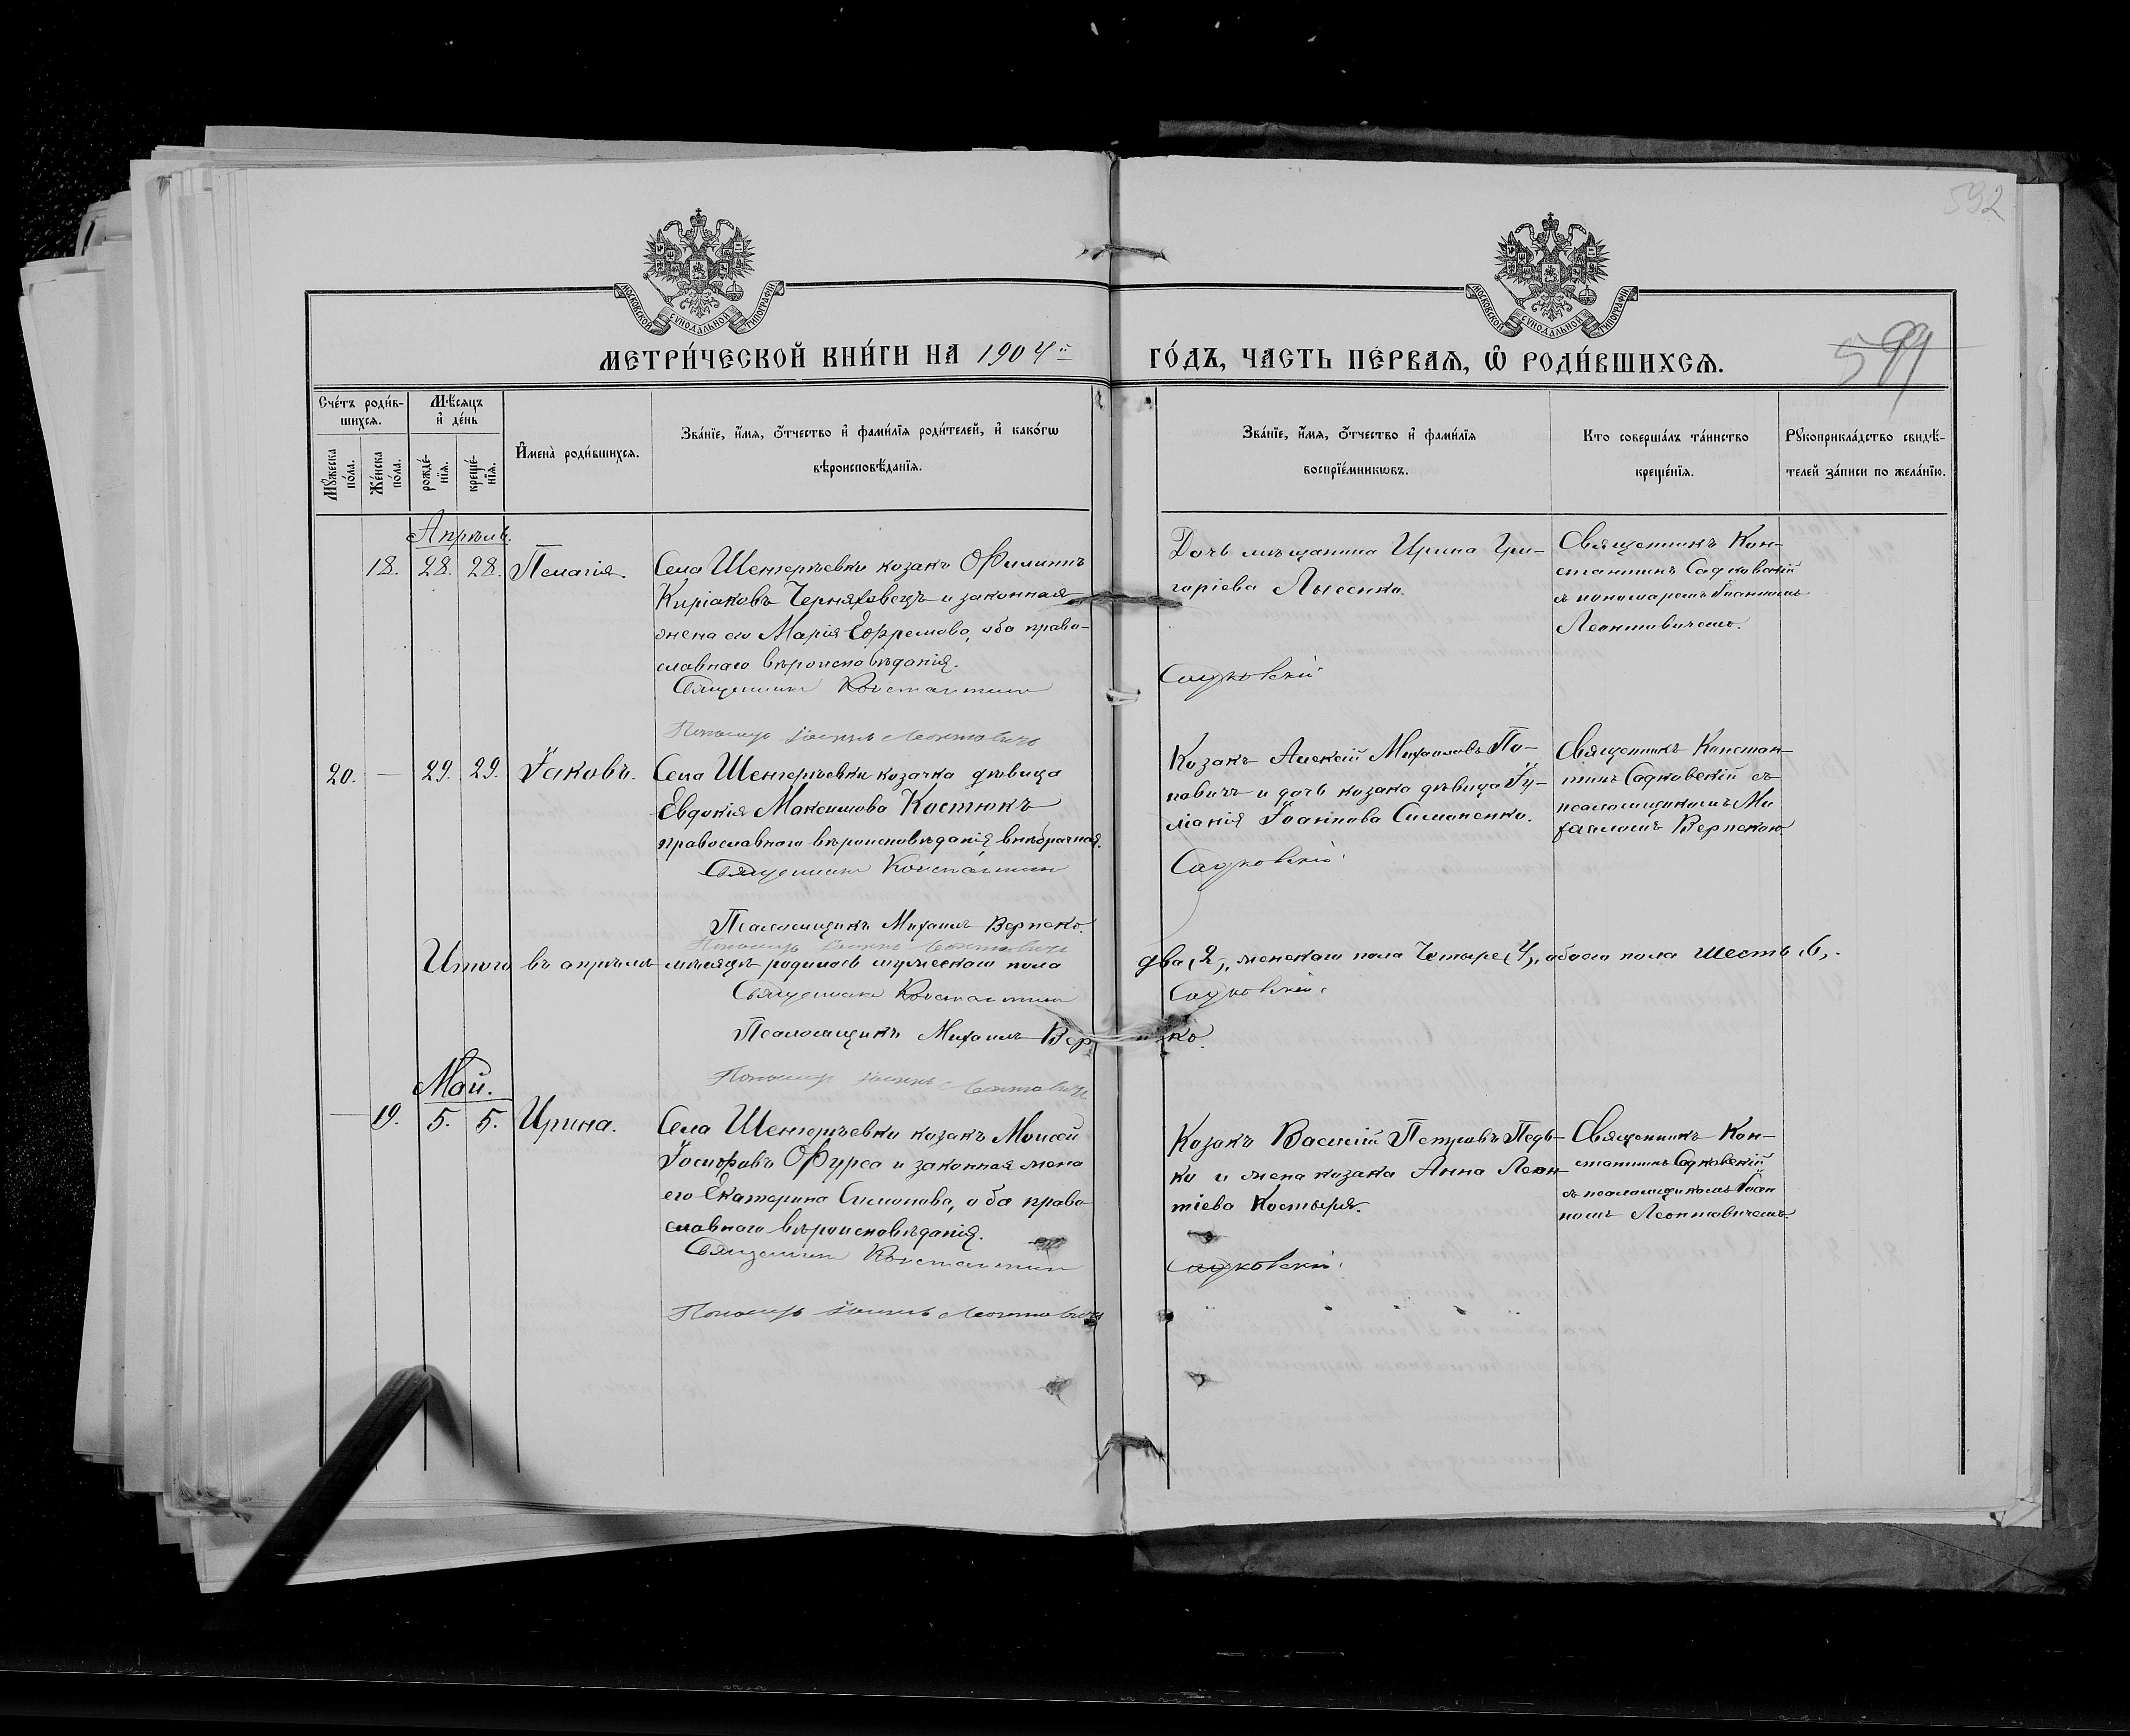 592
МОСКОВСКОЙ СУНОДАЛЬНОЙ ТИПОГРАФІИ
МОСКОВСКОЙ СУНОДАЛЬНОЙ ТИПОГРАФІИ
МЕТРИ́ЧЕСКОЙ КНИ́ГИ НА 1904й
ГО́ДЪ, ЧАСТЬ ПЕ́РВАЯ, Ѿ РОДИ́ВШИХСЯ.
599
Сче́тъ роди́в-
шихся.
Мѣ́сяцъ
и҆ де́нь
Мꙋ́жеска
по́ла.
Же́нска
по́ла.
рожде́-
нїя.
креще́-
нїя.
И҆мена̀ роди́вшихся.
Зва́нїе, и҆́мя, ѻ҆́тчество и҆ фами́лїя роди́телей, и҆ како́гѡ
вѣроисповѣ́данїя.
Зва́нїе, и҆́мя, ѻ҆́тчество и҆ фами́лїя
воспрїе́мникѡвъ.
Кто соверша́лъ та́инство
креще́нїя.
Рꙋкоприкла́дство свидѣ́-
телей за́писи по жела́нїю.
Апрѣль.
18. 28. 28. Пелагія.
Села Шенгеръевки козакъ Филиппъ
Киріаковъ Черняховецъ и законная
жена его Марія Ефремова, оба право-
славнаго вѣроисповѣданія.
Священникъ Константинъ
Пономарь Іоаннъ Леонтовичъ
Дочь мѣщанина Ирина Гри-
горіева Лысенко.
Садковскій
Священникъ Кон-
стантинъ Садковскій
съ пономаремъ Іоанномъ
Леонтовичемъ.
20. — 29. 29. Іаковъ.
Села Шенгеръевки козачка дѣвица
Евдокія Максимова Костюкъ
православнаго вѣроисповѣданія, внѣбрачная.
Священникъ Константинъ
Псаломщикъ Михаилъ Вернско.
Пономарь Іоаннъ Леонтовичъ
Козакъ Алексій Михаиловъ По-
повичъ и дочь козака дѣвица Іу-
ліанія Іоаннова Симоненко.
Садковскій
Священникъ Констан-
тинъ Садковскій съ
псаломщикомъ Ми
хаиломъ
Итого въ апрѣлѣ мѣсяцѣ родилось мужескаго пола
два (2), женскаго пола Четыре (4), обоего пола шесть (6).
Священникъ Константинъ
Садковскій
Псаломщикъ Михаилъ
Пономарь Іоаннъ Леонтовичъ
Май.
— 19. 5. 5. Ирина.
Села Шенгеръевки козакъ Моисей
Іосифовъ Фурса и законная жена
его Екатерина Симонова, оба право
славнаго вѣроисповѣданія.
Священникъ Константинъ
Пономарь Іоаннъ Леонтовичъ
Козакъ Василій Петровъ Педь-
ко и жена козака Анна Леон
тіева Костыря.
Садковскій
Священникъ Кон-
стантинъ Садковскій
съ псаломщикомъ Іоан
номъ Леонтовичемъ.